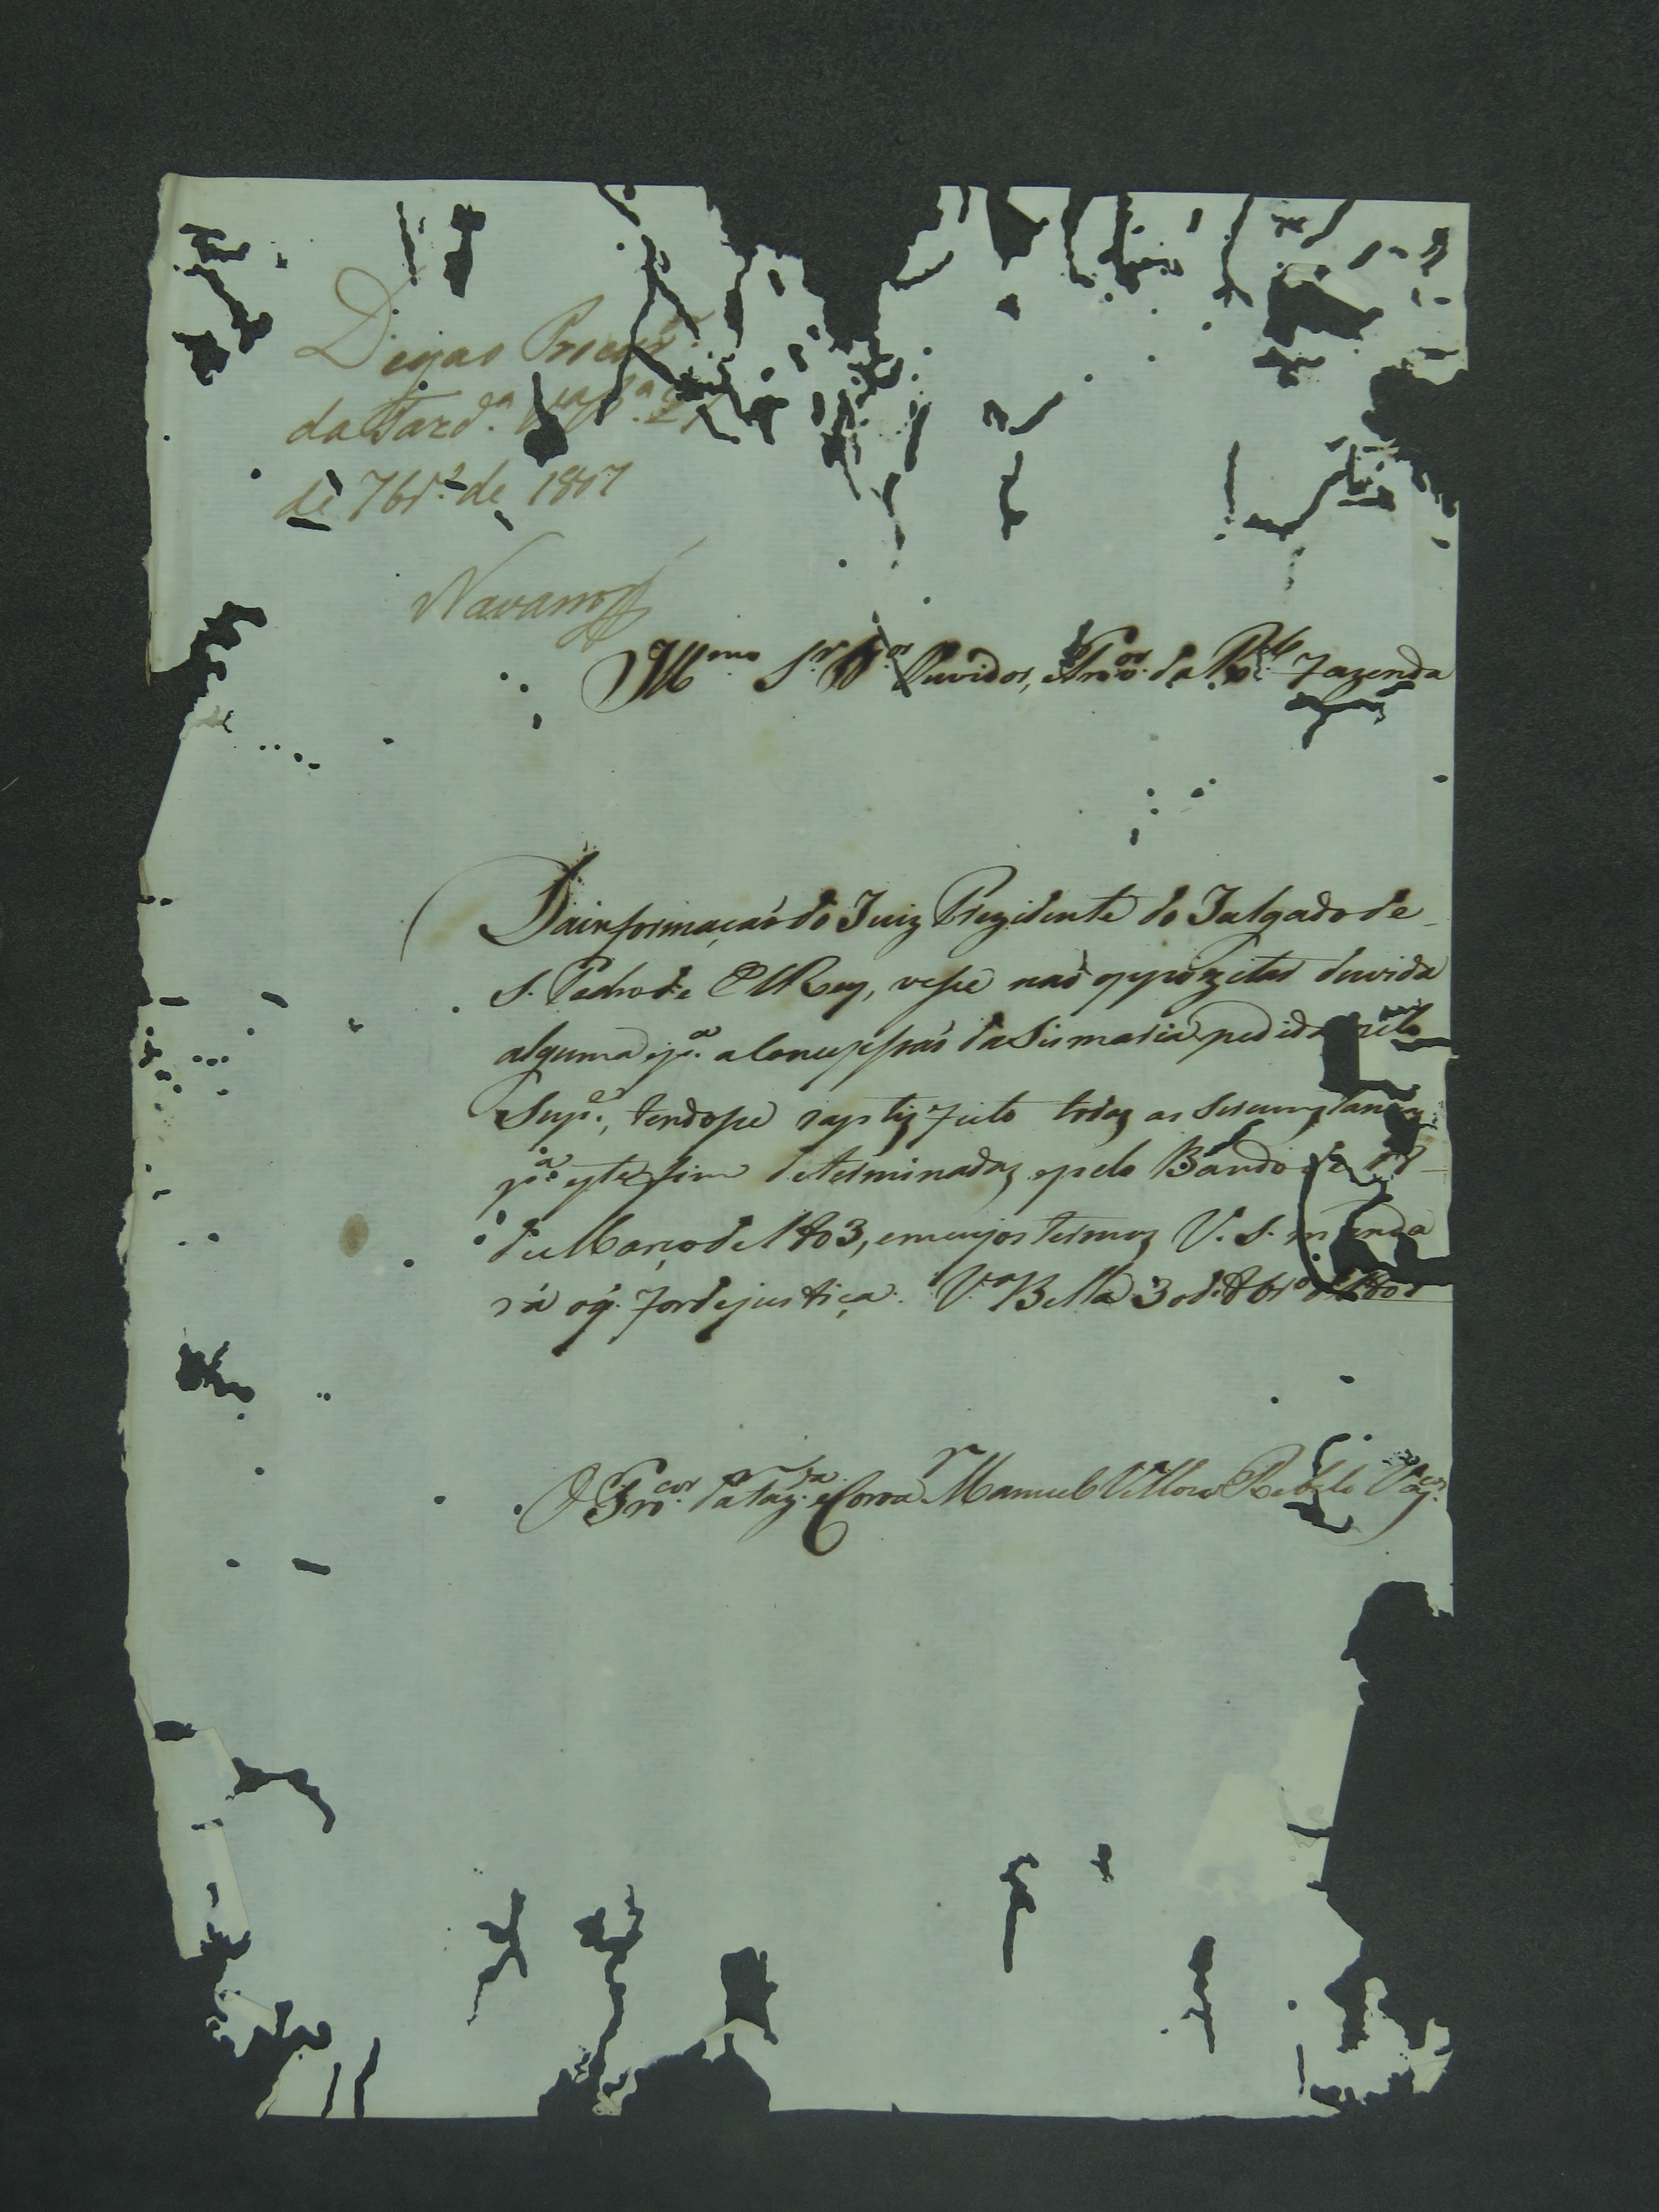 Diga o Procor
da Fazda
de 7brº de 1807
Navarro
Illmo Sr Dor Ouvidor, e Prov.or da Rl Fazenda
Da informação do Juiz Prezidente do Julgado de
S. Pedro de ElRey, vesse não oppozetas duvida
alguma pª. a Concessão da Sismaria pedida pelo
Supe., tendosse satisfeito todas as sircunstancias
pª. este fim determinadas pelo Bando de
de Março de 1803, em cujos termos V. S. manda
rá o q. for de justiça. Vª Bella 30 de 8brº de
O Procor. da Fazda. e Coroa Manuel Velloso Rebello Vasos.